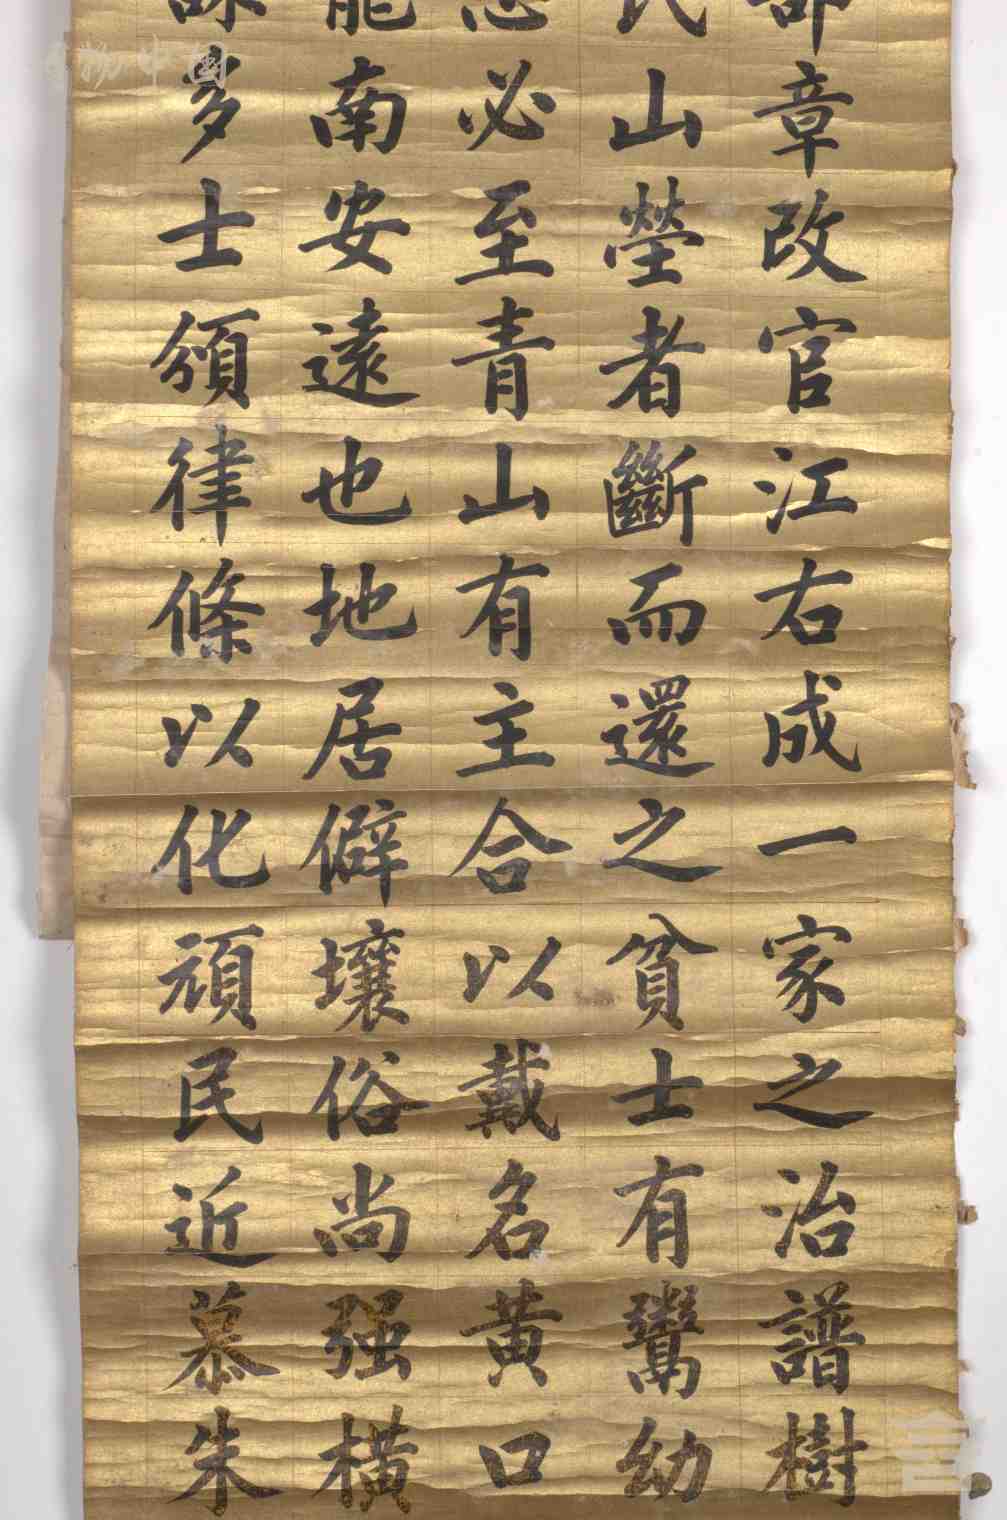 部章改官江右成一家之治譜樹
氏山塋者斷而還之貧士有鬻幼
必至青山有主合以戴名黃口
能南安遠也地居僻壤俗尚强橫
多士頒律條以化頑民近慕朱